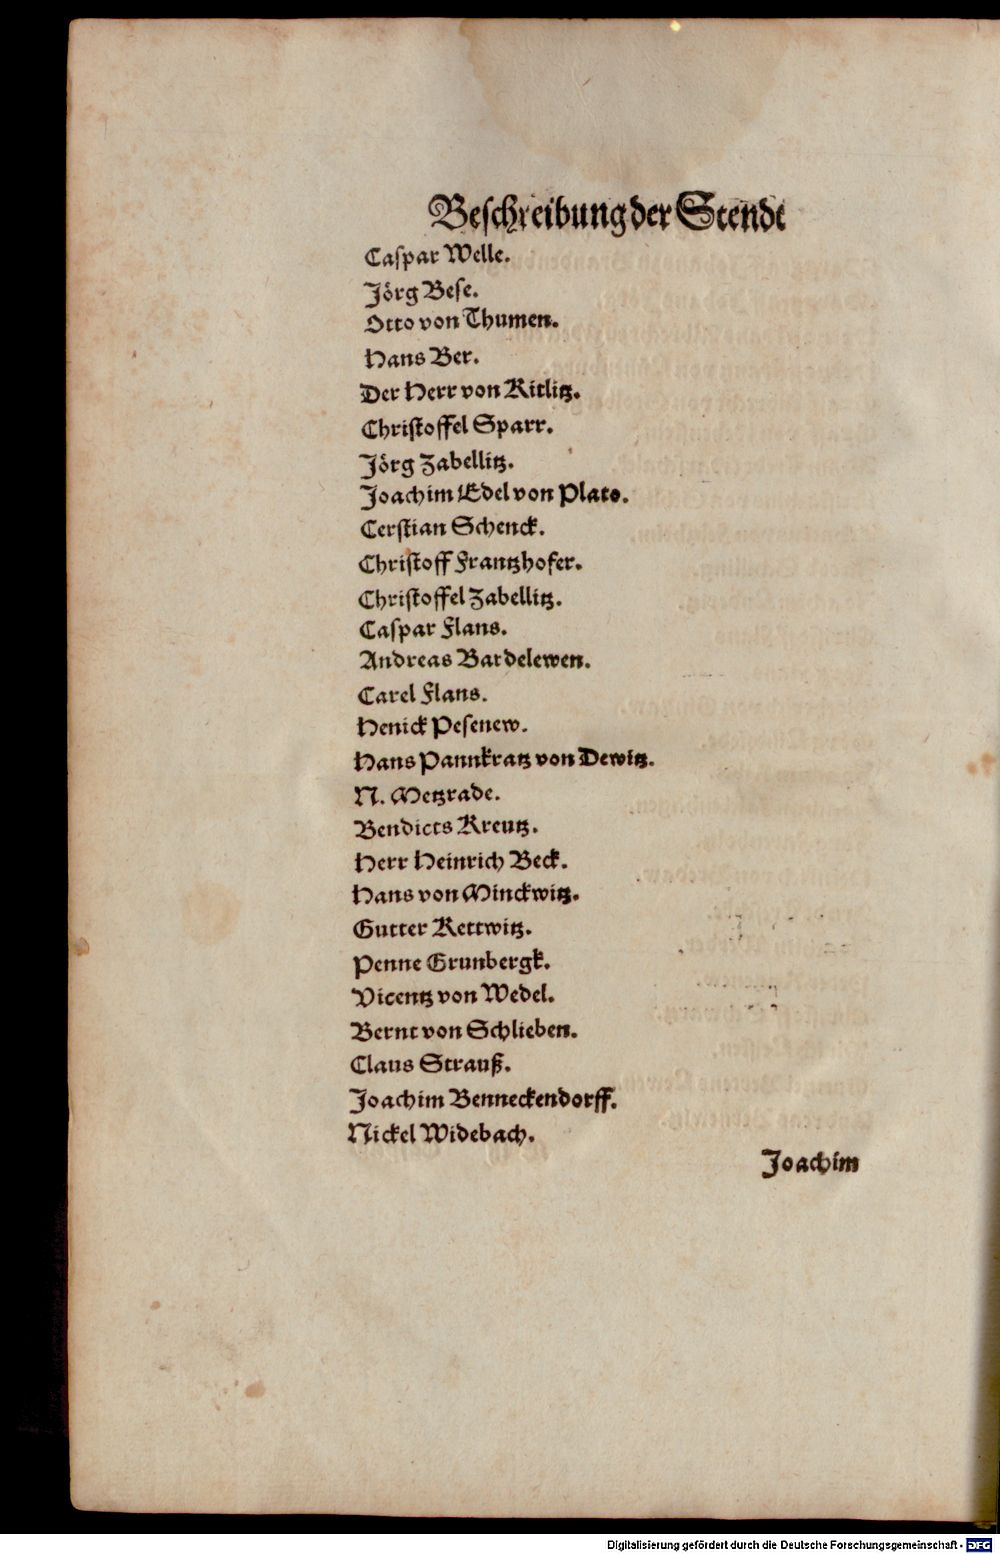 Beschreibung der Stende
Caspar Welle.
Jörg Bese.
Otto von Thumen.
Hans Ber.
Der Herr von Kitlitz.
Christoffel Sparr.
Jörg Zabellitz.
Joachim Edel von Plato.
Cerstian Schenck.
Christoff Frantzhofer.
Christoffel Zabellitz.
Caspar Flans.
Andreas Bardelewen.
Carel Flans.
Henick Pesenew.
Hans Pannkratz von Dewitz.
N. Metzrade.
Bendicts Kreutz.
Herr Heinrich Beck.
Hans von Minckwitz.
Gutter Kettwitz.
Penne Grunbergk.
Vicentz von Wedel.
Bernt von Schlieben.
Claus Strauß.
Joachim Benneckendorff.
Nickel Widebach.
Joachim
Digitalisierung gefördert durch die Deutsche Forschungsgemeinschaft - DFG